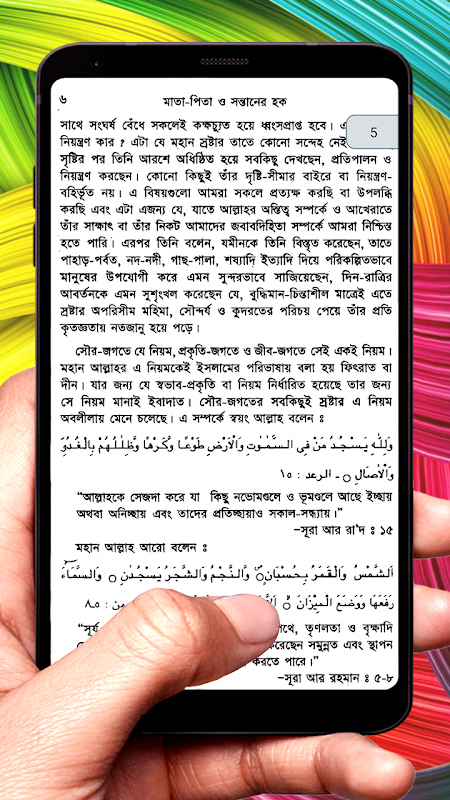 ৬ মাতা-পিতা ও সন্তানের হক
সাথে সংঘর্ষ বেঁধে সকলেই কক্ষচ্যুত হয়ে ধ্বংসপ্রাপ্ত হবে।
5
নিয়ন্ত্রণ কার ? এটা যে মহান স্রষ্টার তাতে কোনো সন্দেহ নেই
সৃষ্টির পর তিনি আরশে অধিষ্ঠিত হয়ে সবকিছু দেখছেন, প্রতিপালন ও
নিয়ন্ত্রণ করছেন। কোনো কিছুই তাঁর দৃষ্টি-সীমার বাইরে বা নিয়ন্ত্রণ-
বহির্ভূত নয়। এ বিষয়গুলো আমরা সকলে প্রত্যক্ষ করছি বা উপলব্ধি
করছি এবং এটা এজন্য যে, যাতে আল্লাহর অস্তিত্ব সম্পর্কে ও আখেরাতে
তাঁর সাক্ষাৎ বা তাঁর নিকট আমাদের জবাবদিহিতা সম্পর্কে আমরা নিশ্চিন্ত
হতে পারি। এরপর তিনি বলেন, যমীনকে তিনি বিস্তৃত করেছেন, তাতে
পাহাড়-পর্বত, নদ-নদী, গাছ-পালা, শষ্যাদি ইত্যাদি দিয়ে পরিকল্পিতভাবে
মানুষের উপযোগী করে এমন সুন্দরভাবে সাজিয়েছেন, দিন-রাত্রির
আবর্তনকে এমন সুশৃংখল করেছেন যে, বুদ্ধিমান-চিন্তাশীল মাত্রেই এতে
স্রষ্টার অপরিসীম মহিমা, সৌন্দর্য ও কুদরতের পরিচয় পেয়ে তাঁর প্রতি
কৃতজ্ঞতায় নতজানু হয়ে পড়ে।
সৌর-জগতে যে নিয়ম, প্রকৃতি-জগতে ও জীব-জগতে সেই একই নিয়ম।
মহান আল্লাহর এ নিয়মকেই ইসলামের পরিভাষায় বলা হয় ফিৎরাত বা
দীন। যার জন্য যে স্বভাব-প্রকৃতি বা নিয়ম নির্ধারিত হয়েছে তার জন্য
সে নিয়ম মানাই ইবাদাত। সৌর-জগতের সবকিছুই স্রষ্টার এ নিয়ম
অবলীলায় মেনে চলেছে। এ সম্পর্কে স্বয়ং আল্লাহ বলেন ঃ
وَلِلّٰهِ يَسْجُدُ مَنْ فِى السَّمٰوٰتِ وَالْاَرْضِ طَوْعًا وَّكَرْهًا وَّظِلٰلُهُمْ بِالْغُدُوِّ
وَالْاٰصَالِ ۝ ـ الرعد : ١٥
“আল্লাহকে সেজদা করে যা কিছু নভোমণ্ডলে ও ভূমণ্ডলে আছে ইচ্ছায়
অথবা অনিচ্ছায় এবং তাদের প্রতিচ্ছায়াও সকাল-সন্ধ্যায়।”
–সূরা আর রা’দ ঃ ১৫
মহান আল্লাহ আরো বলেন ঃ
اَلشَّمْسُ وَالْقَمَرُ بِحُسْبَانٍ ۝ وَّالنَّجْمُ وَالشَّجَرُ يَسْجُدٰنِ ۝ وَالسَّمَآءَ
رَفَعَهَا وَوَضَعَ الْمِيْزَانَ ۝ من : ٨ـ٥
“সূর্য পথে, তৃণলতা ও বৃক্ষাদি
করেছেন সমুন্নত এবং স্থাপন
করতে পারে।”
–সূরা আর রহমান ঃ ৫-৮